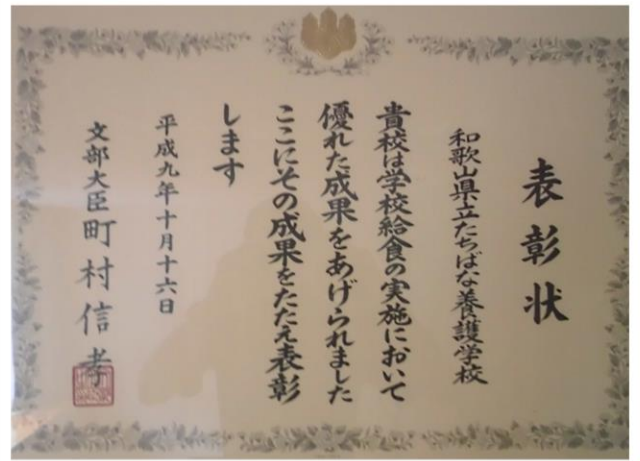 表彰状
和歌山県立たちばな養護学校
貴校は学校給食の実施において
優れた成果をあげられました
ここにその成果をたたえ表彰
します
平成九年十月十六日
文部大臣 町村信孝